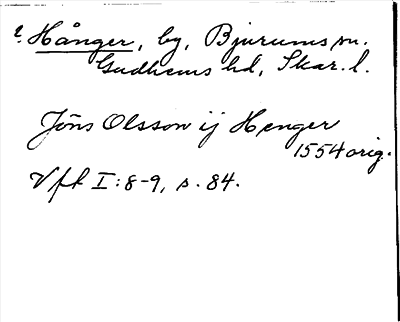 2. Hånger, by, Bjurums sn.
Gudhems hd, Skar. l.
Jöns Olsson ij Henger
1554 orig.
Vft I: 8-9, s. 84.